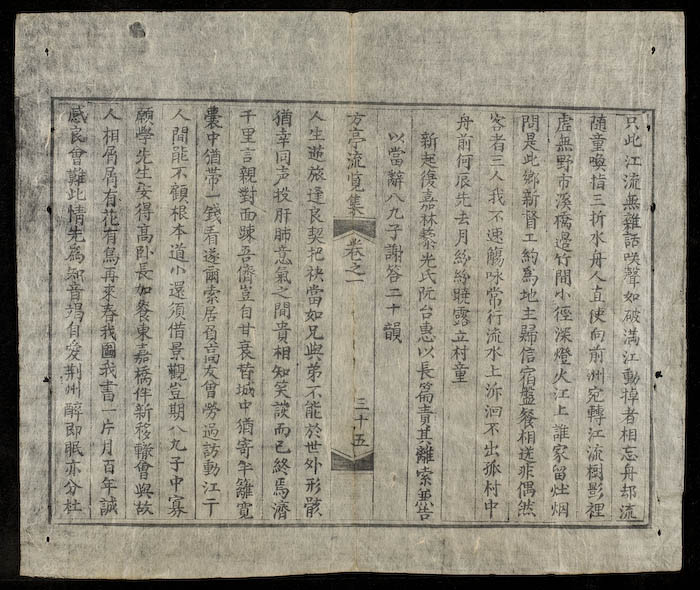 只此江流無雜話咲聲如破满江動棹者相忘舟却流
随童喚指三折水舟人直使向前洲宛轉江流樹影裡
虚無野市溪橋邉竹間小徑深燈火江上誰家留灶烟
問是此鄉新督工約為地主歸信宿盤餐相送非偶然
客者三人我不速觴咏常行流水上泝洄不出孤村中
舟前何辰先去月紛紛曉露立村童
新起復嘉林黎光氏阮台惠以長篇責其離索無告
以當辭八九子謝答二十韻
方亭流覧集 卷之一 三十五
人生逆旅逢良契把袂當如兄與弟不能於世外形骸
猶幸同声投肝肺意氣之間貴相知笑談而已終焉濟
千里言親對面踈吾儕豈自甘衰替城中猶寄半籬寬
囊中猶帶一錢看遂爾索居負高友曾勞過訪動江干
人間能不顧根本道小還須借景觀豈期八九子中寡
願學先生安得高卧長加餐東嘉橋伴新移轍會與故
人相屑屑有花有鳥再來春我圖我書一片月百年誠
感良會難此情先為知音竭自愛荆州醉即眠亦分杜